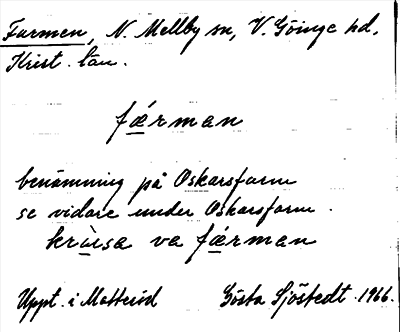 Farmen, N. Mellby sn, V. Göinge hd,
Krist. län.
fǽrman
benämning på Oskarsfarm
se vidare under Oskarsfarm.
krùsa va fǽrman
Uppt. i Matteröd Gösta Sjöstedt. 1966.